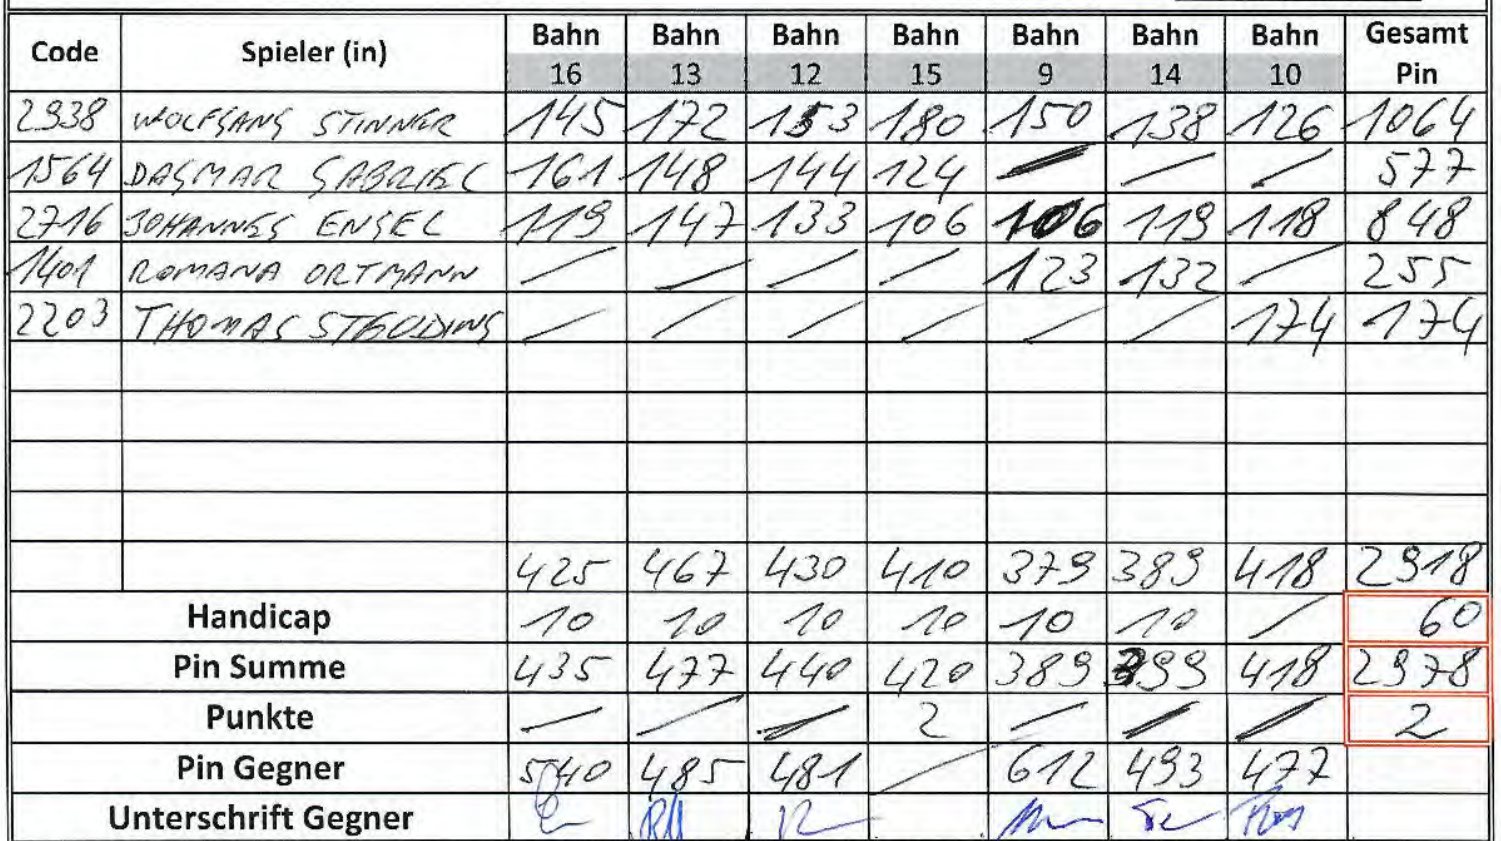 Code Spieler (in) Bahn 16 Bahn 13 Bahn 12 Bahn 15 Bahn 9 Bahn 14 Bahn 10 Gesamt Pin
2938 WOLFGANG STINNER 145 172 153 180 150 138 126 1064
1564 DAGMAR GABRIEL 161 148 144 124 / / / 577
2716 JOHANNES ENGEL 119 147 133 106 106 119 118 848
1401 ROMANA ORTMANN / / / / 123 132 / 255
2203 THOMAS / / / / / / 174 174
425 467 430 410 379 389 418 2918
Handicap 10 10 10 10 10 10 / 60
Pin Summe 435 477 440 420 389 399 418 2978
Punkte / / / 2 / / / 2
Pin Gegner 540 485 481 / 612 493 477
Unterschrift Gegner